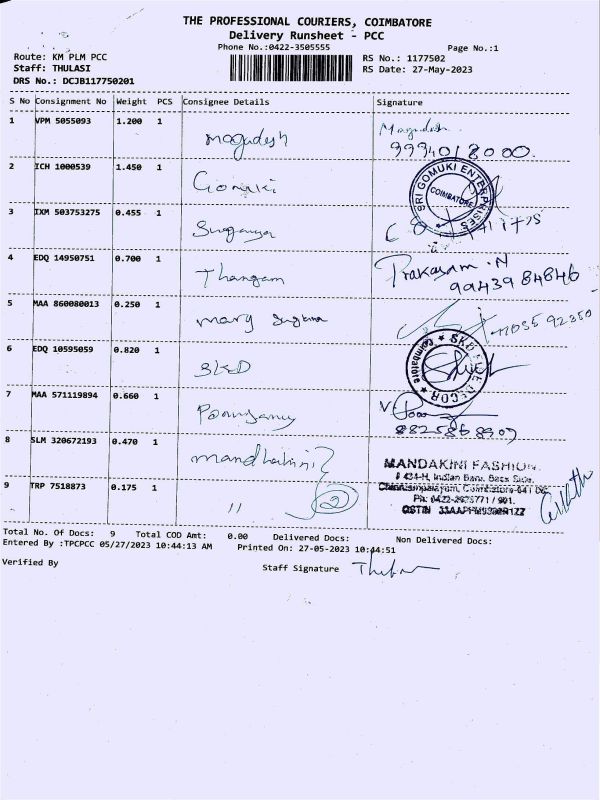 THE PROFESSIONAL COURIERS, COIMBATORE
Delivery Runsheet - PCC
Phone No.:0422-3505555 Page No.:1
Route: KM PLM PCC RS No.: 1177502
Staff: THULASI RS Date: 27-May-2023
DRS No.: DCJB117750201
S No Consignment No Weight PCS Consignee Details Signature
1 VPM 5055093 1.200 1 Magudesh Magudesh
9994018000.
2 ICH 1000539 1.450 1 Gomuki SRI GOMUKI ENTERPRISES COIMBATORE
3 IXM 503753275 0.455 1 Suganya
4 EDQ 14950751 0.700 1 Thangam Prakasam.N
9943984846
5 MAA 860080013 0.250 1 mary
6 EDQ 10595059 0.820 1 SKD Coimbatore
7 MAA 571119894 0.660 1
8 SLM 320672193 0.470 1 mandhakini MANDAKINI FASHION.
# 434-H, Indian Bank Back Side,
9 TRP 7518873 0.175 1 " 2
Total No. Of Docs: 9 Total COD Amt: 0.00 Delivered Docs: Non Delivered Docs:
Entered By :TPCPCC 05/27/2023 10:44:13 AM Printed On: 27-05-2023 10:44:51
Verified By Staff Signature